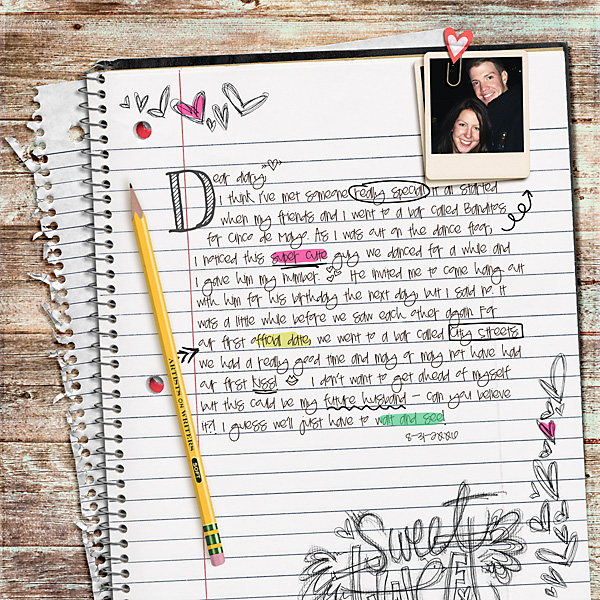 Dear diary,
I think I've met someone really special. It all started
when my friends and I went to a bar called Banditos
for Cinco de Mayo. As I was out on the dance floor,
I noticed this super cute guy. We danced for a while and
I gave him my number. He invited me to come hang out
with him for his birthday the next day, but I said no. It
was a little while before we saw each other again. For
our first official date, we went to a bar called City Streets.
We had a really good time and may or may not have had
our first kiss! I don't want to get ahead of myself
but this could be my future husband - can you believe
it?! I guess we'll just have to wait and see!
ARTISTS OR WRITERS
Sweet